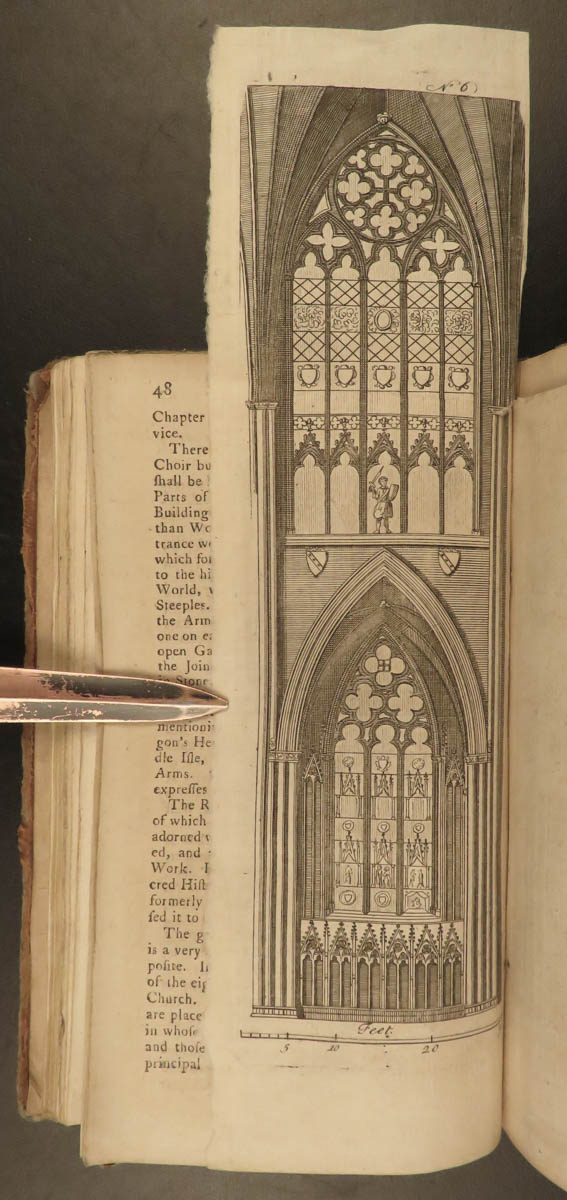 48
Chapter
vice.
There
Choir bu
ſhall be
Parts of
Building
than Wo
trance w
which for
to the hi
World,
Steeples.
the Arm
one on e
open Ga
the Join
in Stone
mentioni
gon's He
dle Iſle,
Arms.
expreſſes
The R
of which
adorned
ed, and
Work. I
cred Hiſt
formerly
ſed it to
The g
is a very
poſite. I
of the eig
Church.
are place
in whoſe
and thoſe
principal
No 6
Feet.
5 10 20